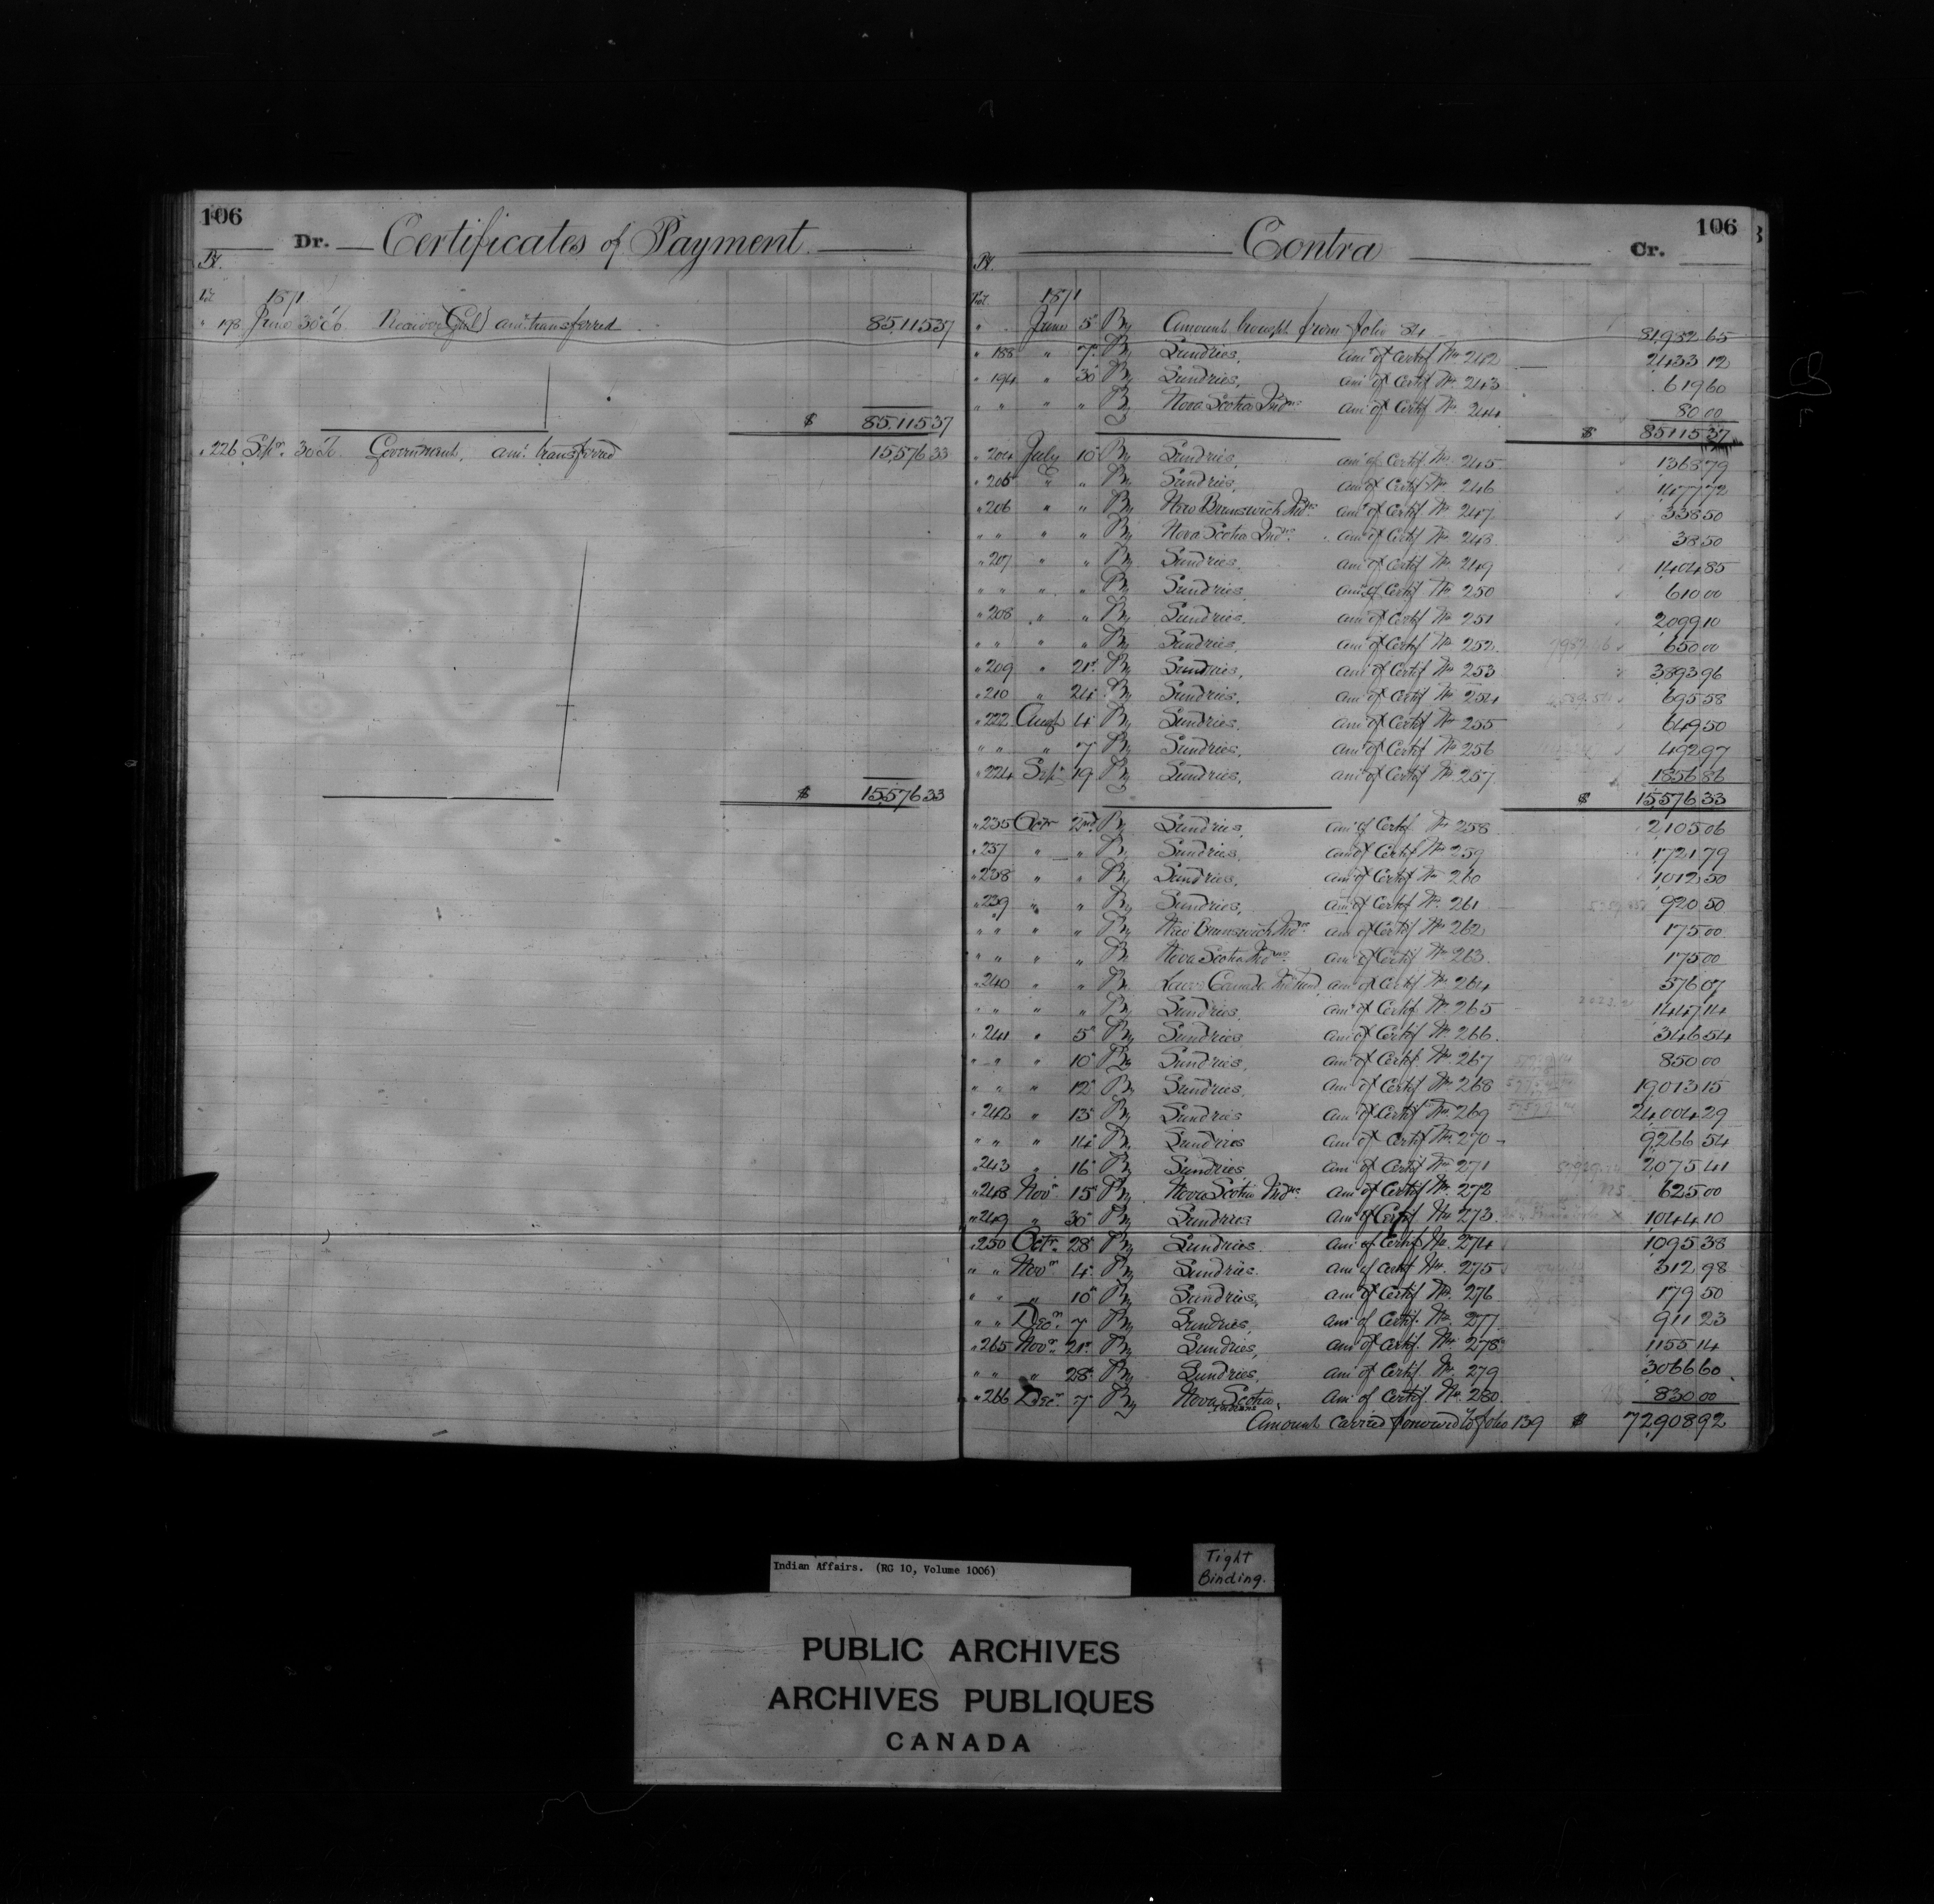 106
Dr. Certificates of Payment
1871
" 198 June 30 To Receiver Genl amt. transferred 85,115 37
$ 85,115 37
" 226 Sepr. 30 To Government, amt. transferred 15,576 33
$ 15,576 33
106
Contra Cr.
1871
" June 5 By Amount brought from folio 84 81,982 65
" 188 " 7 By Sundries, amt of Certif No 242 2,433 12
" 194 " 30 By Sundries, amt of Certif No 243 619 60
" " " " By Nova Scotia Indns amt of Certif No 244 80 00
$ 85,115 37
" 204 July 10 By Sundries, amt of Certif. No 245 1,368 79
" 205 " " By Sundries, amt of Certif No 246 1,477 72
" 206 " " By New Brunswick Indns. amt of Certif No 247 338 50
" " " " By Nova Scotia Indns. amt of Certif No 248 38 50
" 207 " " By Sundries, amt of Certif No 249 1,404 85
" " " " By Sundries, amt of Certif No 250 610 00
" 208 " " By Sundries, amt of Certif No 251 2,099 10
" " " " By Sundries, amt of Certif No 252 650 00
" 209 " 21st By Sundries, amt of Certif No 253 3,893 96
" 210 " 24 By Sundries, amt of Certif No 254 695 58
" 222 Augt 4 By Sundries, amt of Certif No 255 649 50
" " " 7 By Sundries, amt of Certif No 256 492 97
" 224 Sepr 19 By Sundries, amt of Certif No 257 1,856 86
$ 15,576 33
" 235 Octr 2nd By Sundries, amt of Certif No 258 2,105 06
" 237 " " By Sundries, amt of Certif No 259 1,721 79
" 238 " " By Sundries, amt of Certif No 260 1,012 50
" 239 " " By Sundries, amt of Certif No 261 920 50
" " " " By New Brunswick Indns amt of Certif No 262 175 00
" " " " By Nova Scotia Indns. amt of Certif No 263 175 00
" 240 " " By Lower Canada Ind Fund amt of Certif No 264 576 07
" " " " By Sundries, amt of Certif No 265 1,447 14
" 241 " 5 By Sundries amt of Certif No 266 346 54
" " " 10 By Sundries, amt of Certif. No 267 850 00
" " " 12 By Sundries, amt of Certif No 268 19,013 15
" 242 " 13 By Sundries amt of Certif No 269 24,004 29
" " " 14 By Sundries amt of Certif No 270 9,266 54
" 243 " 16 By Sundries amt of Certif No 271 2,075 41
" 248 Novr 15 By Nova Scotia Indns. amt of Certif No. 272 625 00
" 249 " 30 By Sundries amt of Certif No 273 1,044 10
" 250 Octr. 28 By Sundries. amt of Certif No. 274 1,095 38
" " Novr 4 By Sundries. amt of Certif No. 275 312 98
" " " 10 By Sundries, amt of Certif No. 276 179 50
" " Decr. 7 By Sundries, amt of Certif. No. 277 911 23
" 265 Novr 21st By Sundries, amt of Certif. No. 278 1155 14
" " " 28 By Sundries, amt of Certif. No. 279 3066 60
" 266 Decr. 7 By Nova Scotia Indians amt of Certif. No. 280 830 00
Amount carried forward to folio 139 $ 72,908 92
Indian Affairs. (RG 10, Volume 1006)
Tight
Binding.
PUBLIC ARCHIVES
ARCHIVES PUBLIQUES
CANADA